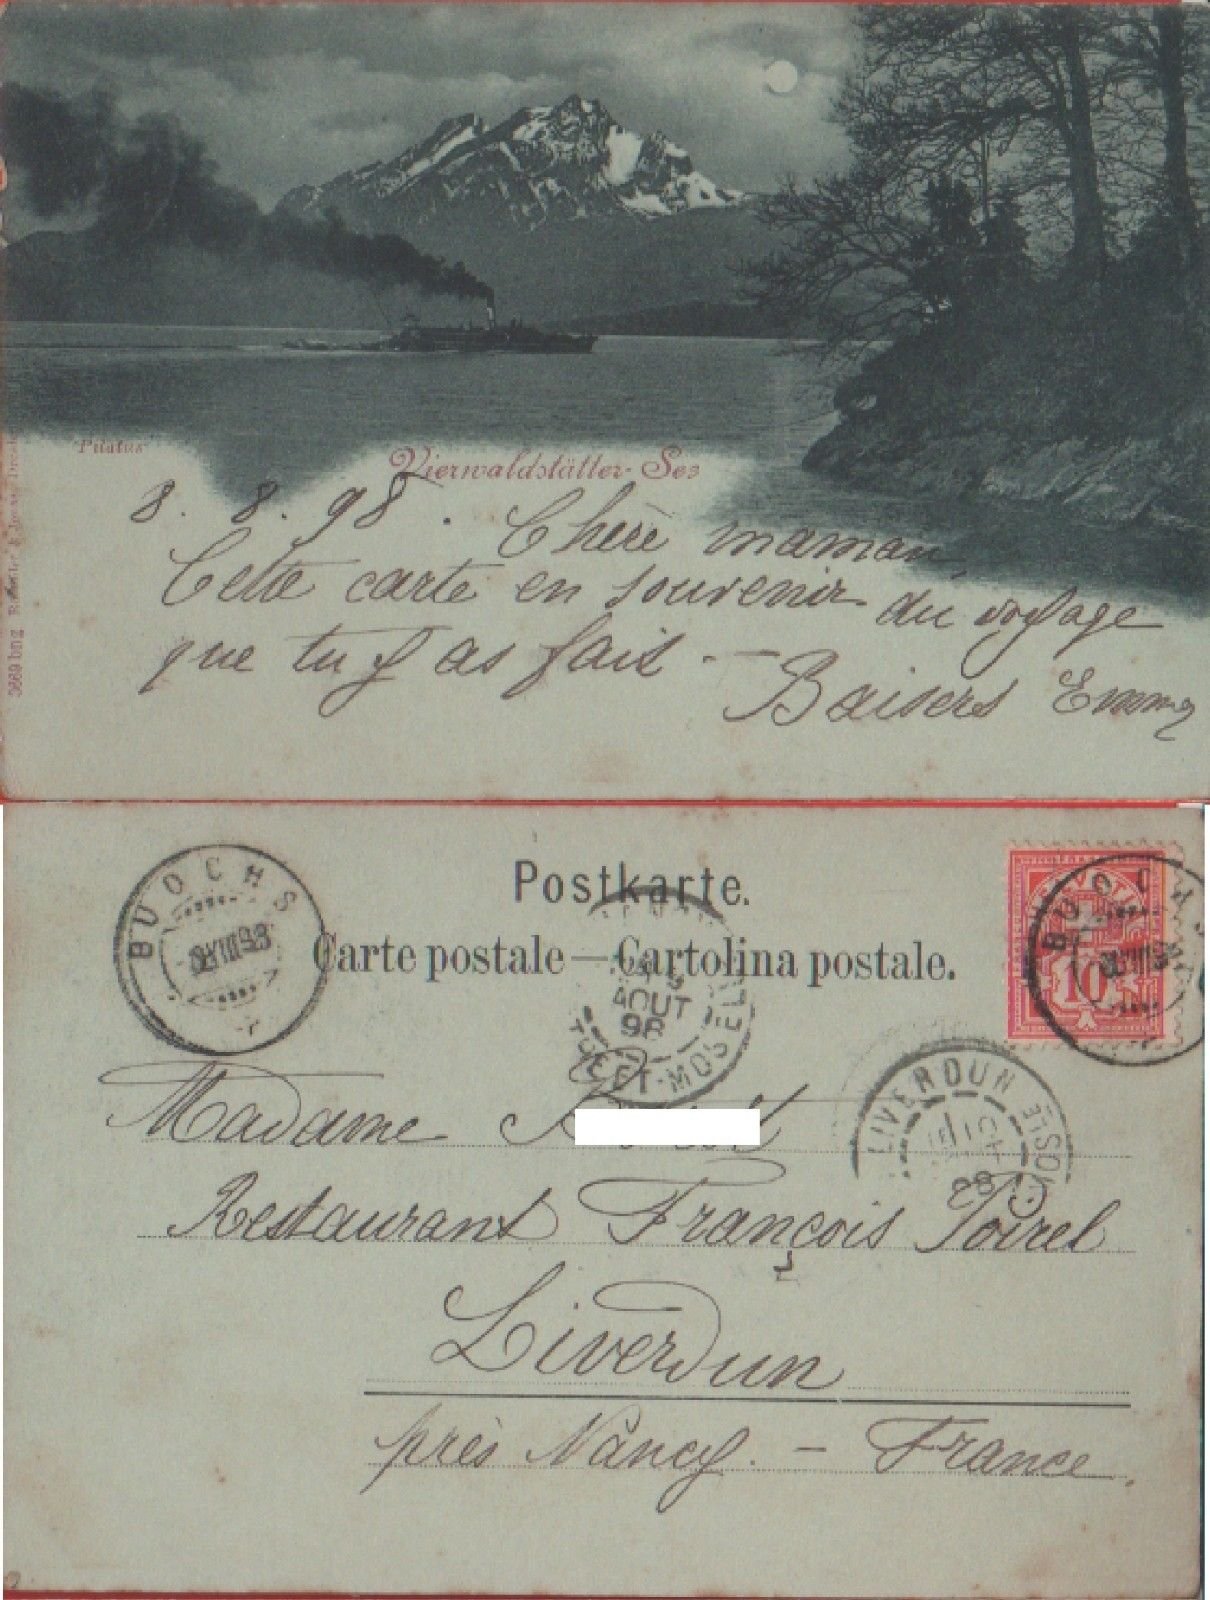 "Pilatus"
Vierwaldstätter-See
8. 8. 98. Chère maman,
Cette carte en souvenir du voyage
que tu y as fait. —
Baisers Emma
3669 bng
BUOCHS
8 VIII 98
Postkarte.
Carte postale — Cartolina postale.
BUOCHS
10
AOUT
98
ET-MOSELLE
LIVERDUN
98
Madame
Restaurant François Poirel
Liverdun
près Nancy. — France.